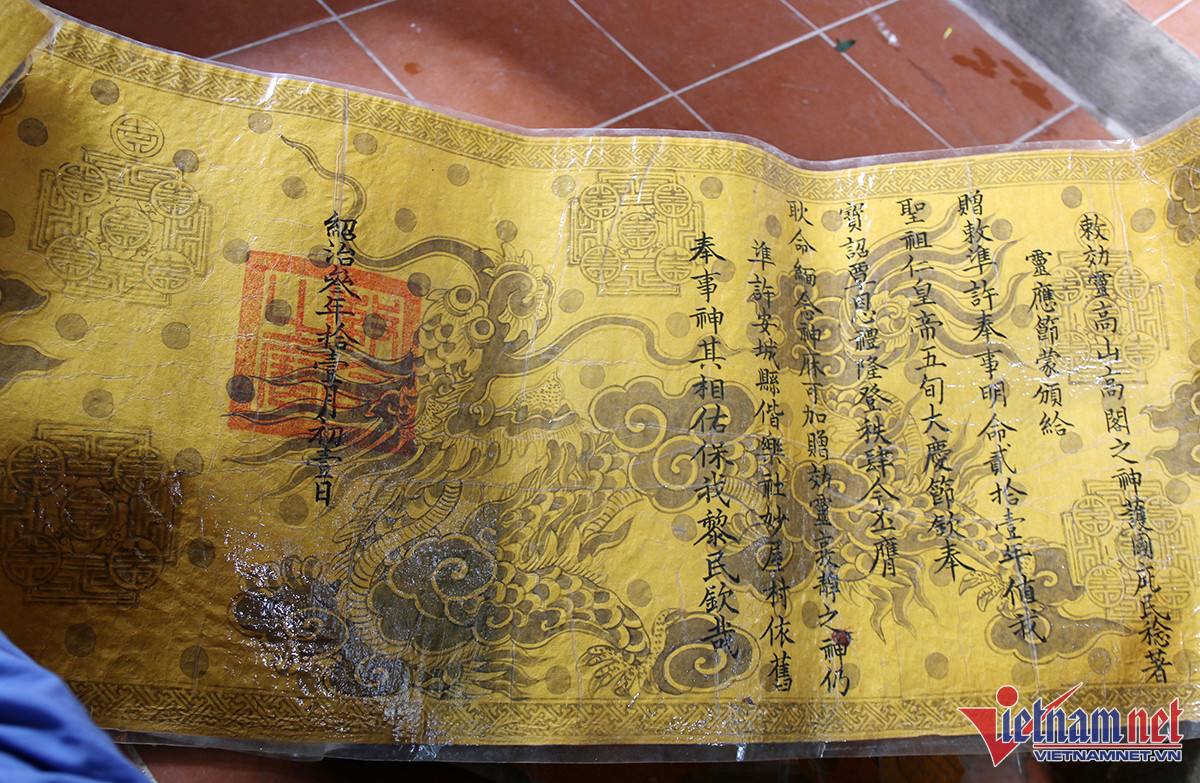 敕効靈高山高閣之神護國庇民稔著
靈應節蒙頒給
贈敕準許奉事明命貳拾壹年値我
聖祖仁皇帝五旬大慶節欽奉
寶詔覃恩禮隆登秩肆今丕膺
耿命緬念神庥可加贈効靈之神仍
準許安城縣偕樂社妙屋村依舊
奉事神其相佑保我黎民欽哉
紹治叄年拾壹月初壹日
Vietnamnet
VIETNAMNET.VN